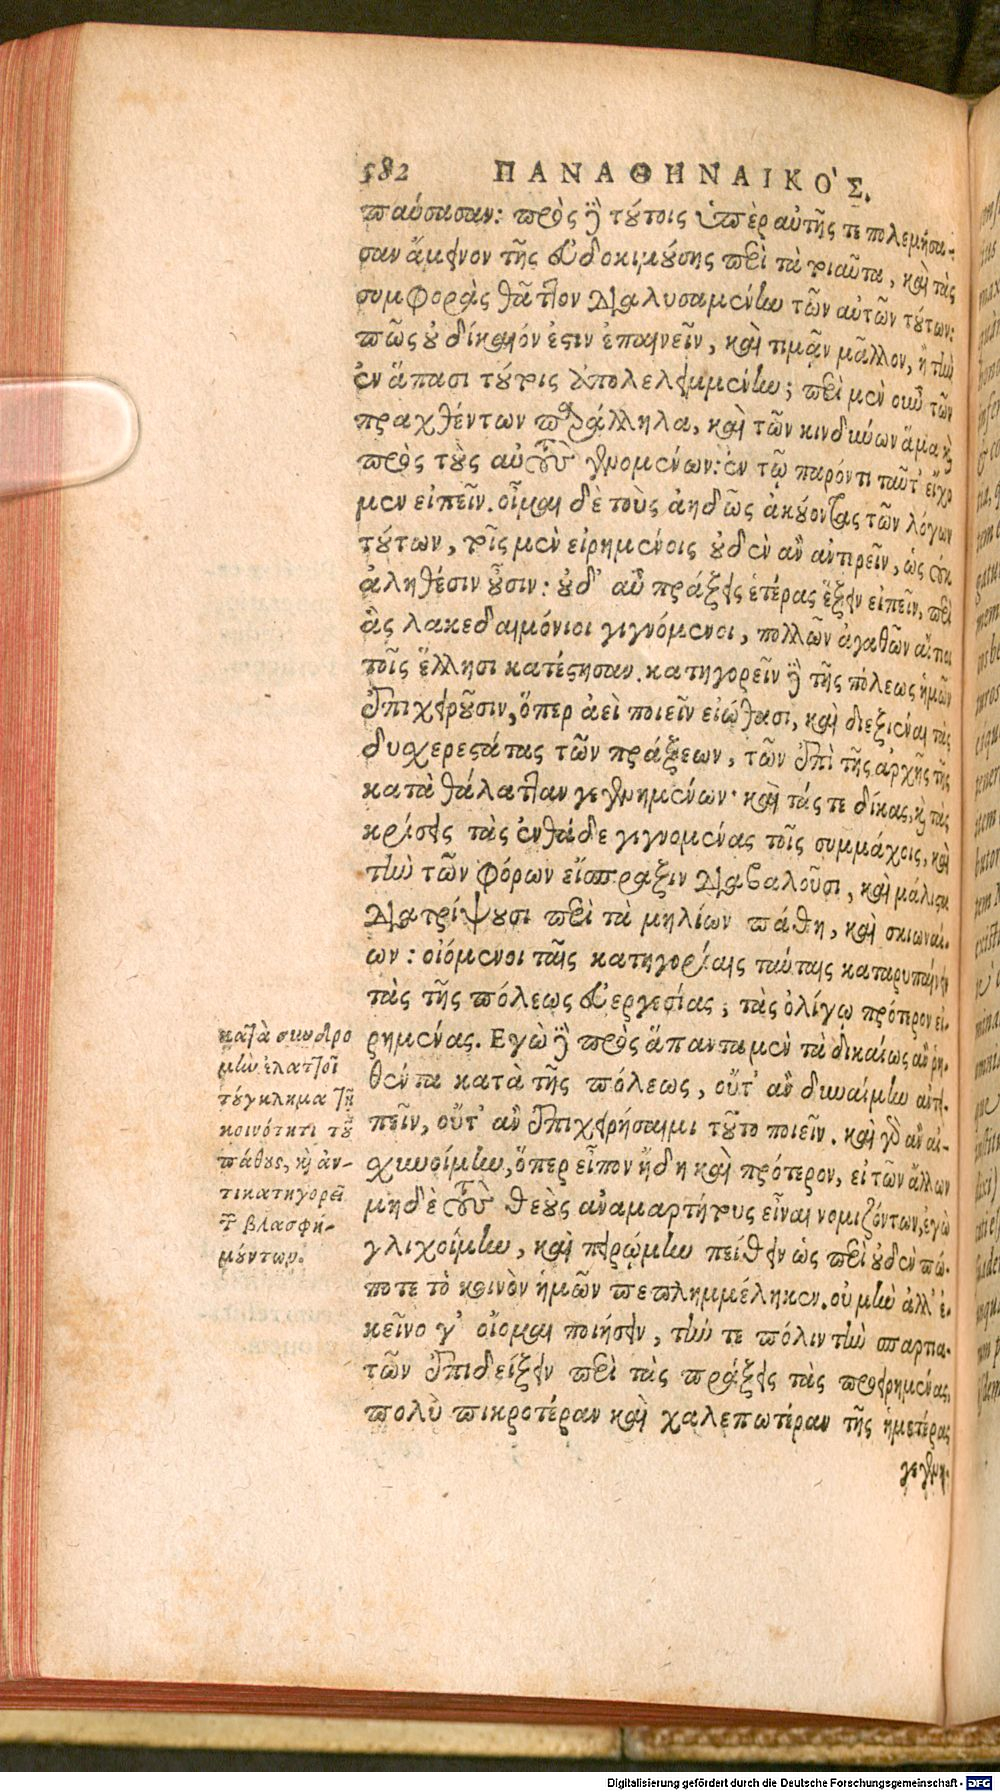 582 ΠΑΝΑΘΗΝΑΙΚΟ'Σ.
παύσασαν: πρὸς δὲ τούτοις ὑπὲρ αὐτῆς τε πολεμήσα-
σαν ἄμεινον τῆς εὐδοκιμούσης περὶ τὰ τοιαῦτα, καὶ τὰς
συμφορὰς θᾶττον διαλυσαμένην τῶν αὐτῶν τούτων:
πῶς οὐ δίκαιόν ἐστιν ἐπαινεῖν, καὶ τιμᾷν μᾶλλον, ἢ τὴν
ἐν ἅπασι τούτοις ἀπολελειμμένην; περὶ μὲν οὖν τῶν
πραχθέντων παράλληλα, καὶ τῶν κινδύνων ἅμα καὶ
πρὸς τοὺς αὐτοὺς γενομένων: ἐν τῷ παρόντι ταῦτ' εἴχο
μεν εἰπεῖν. οἶμαι δὲ τοὺς ἀηδῶς ἀκούοντας τῶν λόγων
τούτων, τοῖς μὲν εἰρημένοις οὐδὲν ἂν ἀντιρεῖν, ὡς οὐκ
ἀληθέσιν οὖσιν: οὐδ' αὖ πράξεις ἑτέρας ἕξειν εἰπεῖν, περὶ
ἃς λακεδαιμόνιοι γιγνόμενοι, πολλῶν ἀγαθῶν αἴτιοι
τοῖς ἕλλησι κατέστησαν. κατηγορεῖν δὲ τῆς πόλεως ἡμῶν
ἐπιχειροῦσιν, ὅπερ ἀεὶ ποιεῖν εἰώθασι, καὶ διεξιέναι τὰς
δυσχερεστάτας τῶν πράξεων, τῶν ἐπὶ τῆς ἀρχῆς τῆς
κατὰ θάλατταν γεγενημένων· καὶ τάς τε δίκας, καὶ τὰς
κρίσεις τὰς ἐνθάδε γιγνομένας τοῖς συμμάχοις, καὶ
τὴν τῶν φόρων εἴσπραξιν διαβαλοῦσι, καὶ μάλιστα
διατρίψουσι περὶ τὰ μηλίων πάθη, καὶ σκιωναί-
ων: οἰόμενοι ταῖς κατηγορίαις ταύταις καταρυπαίνειν
τὰς τῆς πόλεως εὐεργεσίας, τὰς ὀλίγῳ πρότερον εἰ-
ρημένας. Εγὼ δὲ πρὸς ἅπαντα μὲν τὰ δικαίως ἂν ῥη-
θέντα κατὰ τῆς πόλεως, οὔτ' ἂν δυναίμην ἀντει-
πεῖν, οὔτ' ἂν ἐπιχειρήσαιμι τοῦτο ποιεῖν. καὶ γὰρ ἂν αἰ-
σχυνοίμην, ὅπερ εἶπον ἤδη καὶ πρότερον, εἰ τῶν ἄλλων
μηδὲ τοὺς θεοὺς ἀναμαρτήτους εἶναι νομιζόντων, ἐγὼ
γλιχοίμην, καὶ πειρῴμην πείθειν ὡς περὶ οὐδὲν πώ-
ποτε τὸ κοινὸν ἡμῶν πεπλημμέληκεν. οὐ μὴν ἀλλ' ἐ-
κεῖνο γ' οἴομαι ποιήσειν, τήν τε πόλιν τὴν σπαρτια-
τῶν ἐπιδείξειν περὶ τὰς πράξεις τὰς προειρημένας,
πολὺ πικροτέραν καὶ χαλεπωτέραν τῆς ἡμετέρας
γεγενη-
κατὰ συνδρο
μὴν ἐλαττοῖ
τοὔγκλημα τῇ
κοινότητι τοῦ
πάθους, καὶ ἀν-
τικατηγορεῖ
τῶν βλασφη-
μούντων.
Digitalisierung gefördert durch die Deutsche Forschungsgemeinschaft - DFG